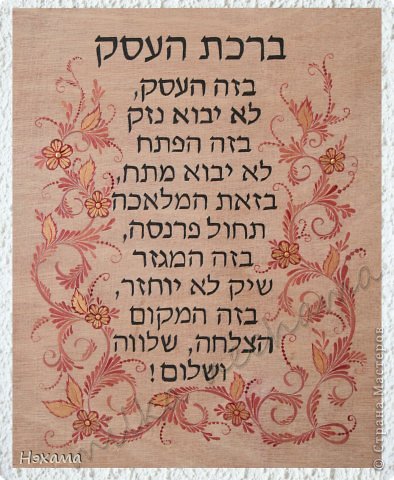 ברכת העסק
בזה העסק,
לא יבוא נזק
בזה הפתח
לא יבוא מתח,
בזאת המלאכה
תחול פרנסה,
בזה המגזר
שיק לא יוחזר,
בזה המקום
הצלחה, שלווה
ושלום!
Нэхама
© Страна Мастеров